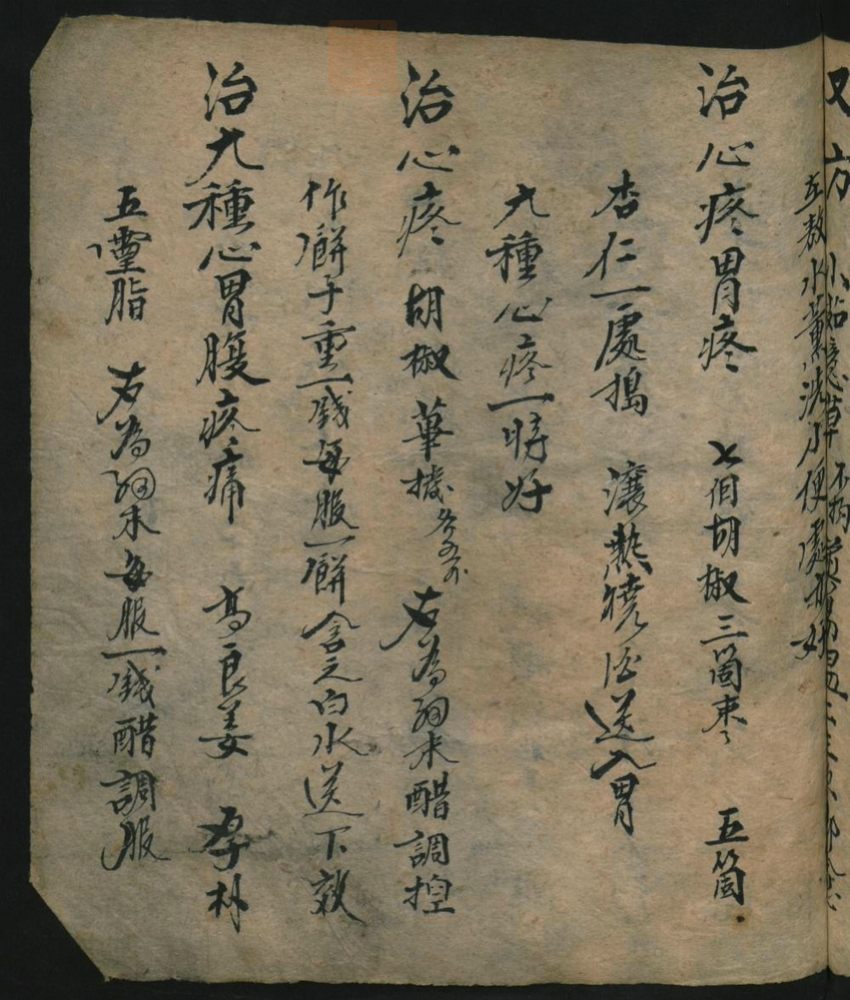 又方
水薰洗小便處
治心疼胃疼 七個胡椒三箇枣 五箇
杏仁一處搗 滾熱燒酒送入胃
九種心疼一時好
治心疼 胡椒 蓽撥 右為細末醋調捏
作餅子重一錢每服一餅含之白水送下效
治九種心胃腹疼痛 高良姜 厚朴
五靈脂 右為細末每服一錢醋調服